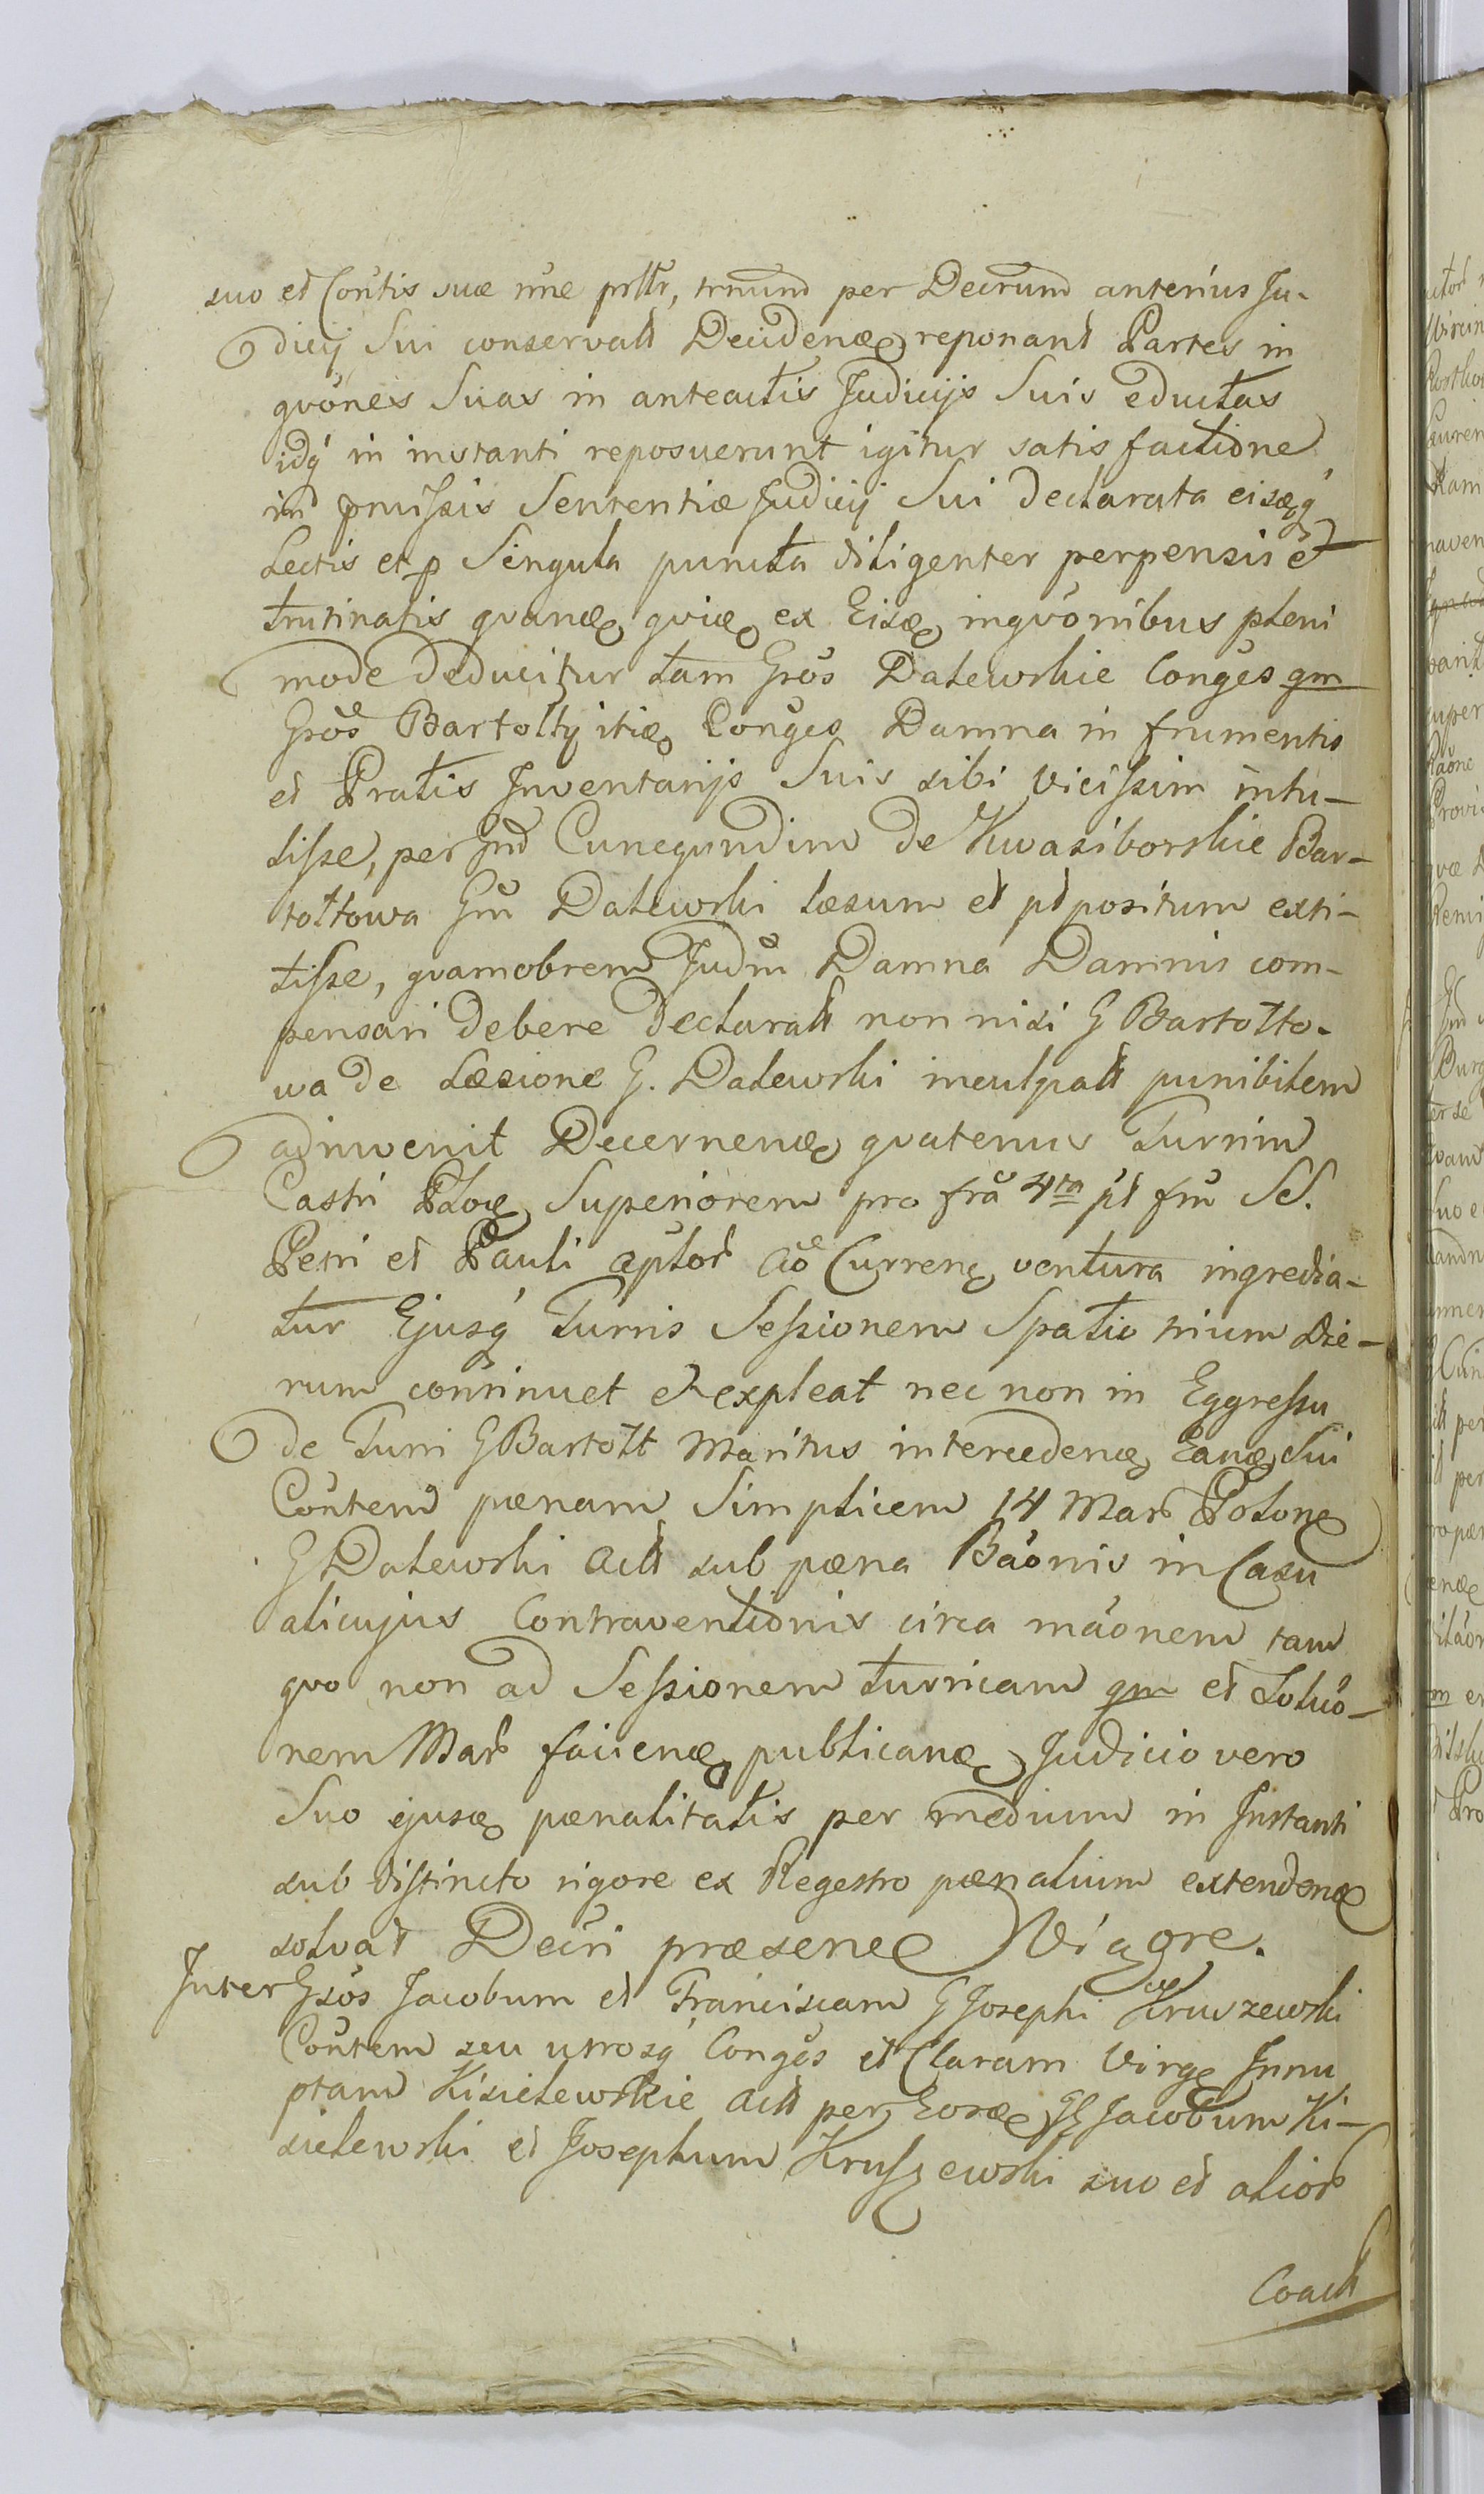 suo et Contis suæ nne prltr, trnum per Decrum anterius Ju-
dicij Sui conservatt Decidenæ, reponant Partes in
qvónes Suas in anteactis Judicijs Suis eductas
idq́ in instanti reposuerunt igitur satisfactione
in pmissis Sententiæ Judicij Sui declarata eisæq́
Lectis et p Singula puncta diligenter perpensis et
trutinatis qvanæ, qviæ ex Eisæ inqvónibus pleni
mode deducitur tam Gros Dalewskie Conges qm
Gros Bartolty itiæ Conges Damna in frumentis
et Pratis Inventarijs Suis sibi vicissim intu-
lisse, per Gnd Cunegundim de Kwasiborskie Bar-
tołtowa Gm Dalewski læsum et pt positum exti-
tisse, qvamobrem Judm Damna Damnis com-
pensari debere declaratt non nisi G Bartołto-
wa de Læsione G. Dalewski inculpatt punibilem
adinvenit Decernenæ qvatenus Turrim
Castri Ploc Superiorem pro fra 4ta pt fm SS.
Petri et Pauli Aplor Ao Curren ventura ingredia-
tur Ejusq́ Turris Sessionem Spatio trium Die-
rum continuet et expleat nec non in Eggressu
de Turri G Bartołt Maritus intercedenæ Eanæ Sui
Contem pænam Simplicem 14 Mar Polon
G Dalewski Actt sub pæna Báonis in Casu
alicujus Contraventionis circa máonem tam
qvo non ad Sessionem turricam qm et Solúo-
nem Mar faciénæ publicanæ, Judicio vero
Suo ejusæ pænalitatis per medium in Instanti
sub distincto rigore ex Regestro pænalium extendenæ
solvat Decri præsene Vigore.
Inter Gsos Jacobum et Franciscam G Josephi Kruszewski
Contem seu utrosq́ Conges et Claram Virg Innu
ptam Kisielewskie Actt per Eosæ GG Jacobum Ki-
sielewski et Josephum Kruszewski suo et alior
Coactt